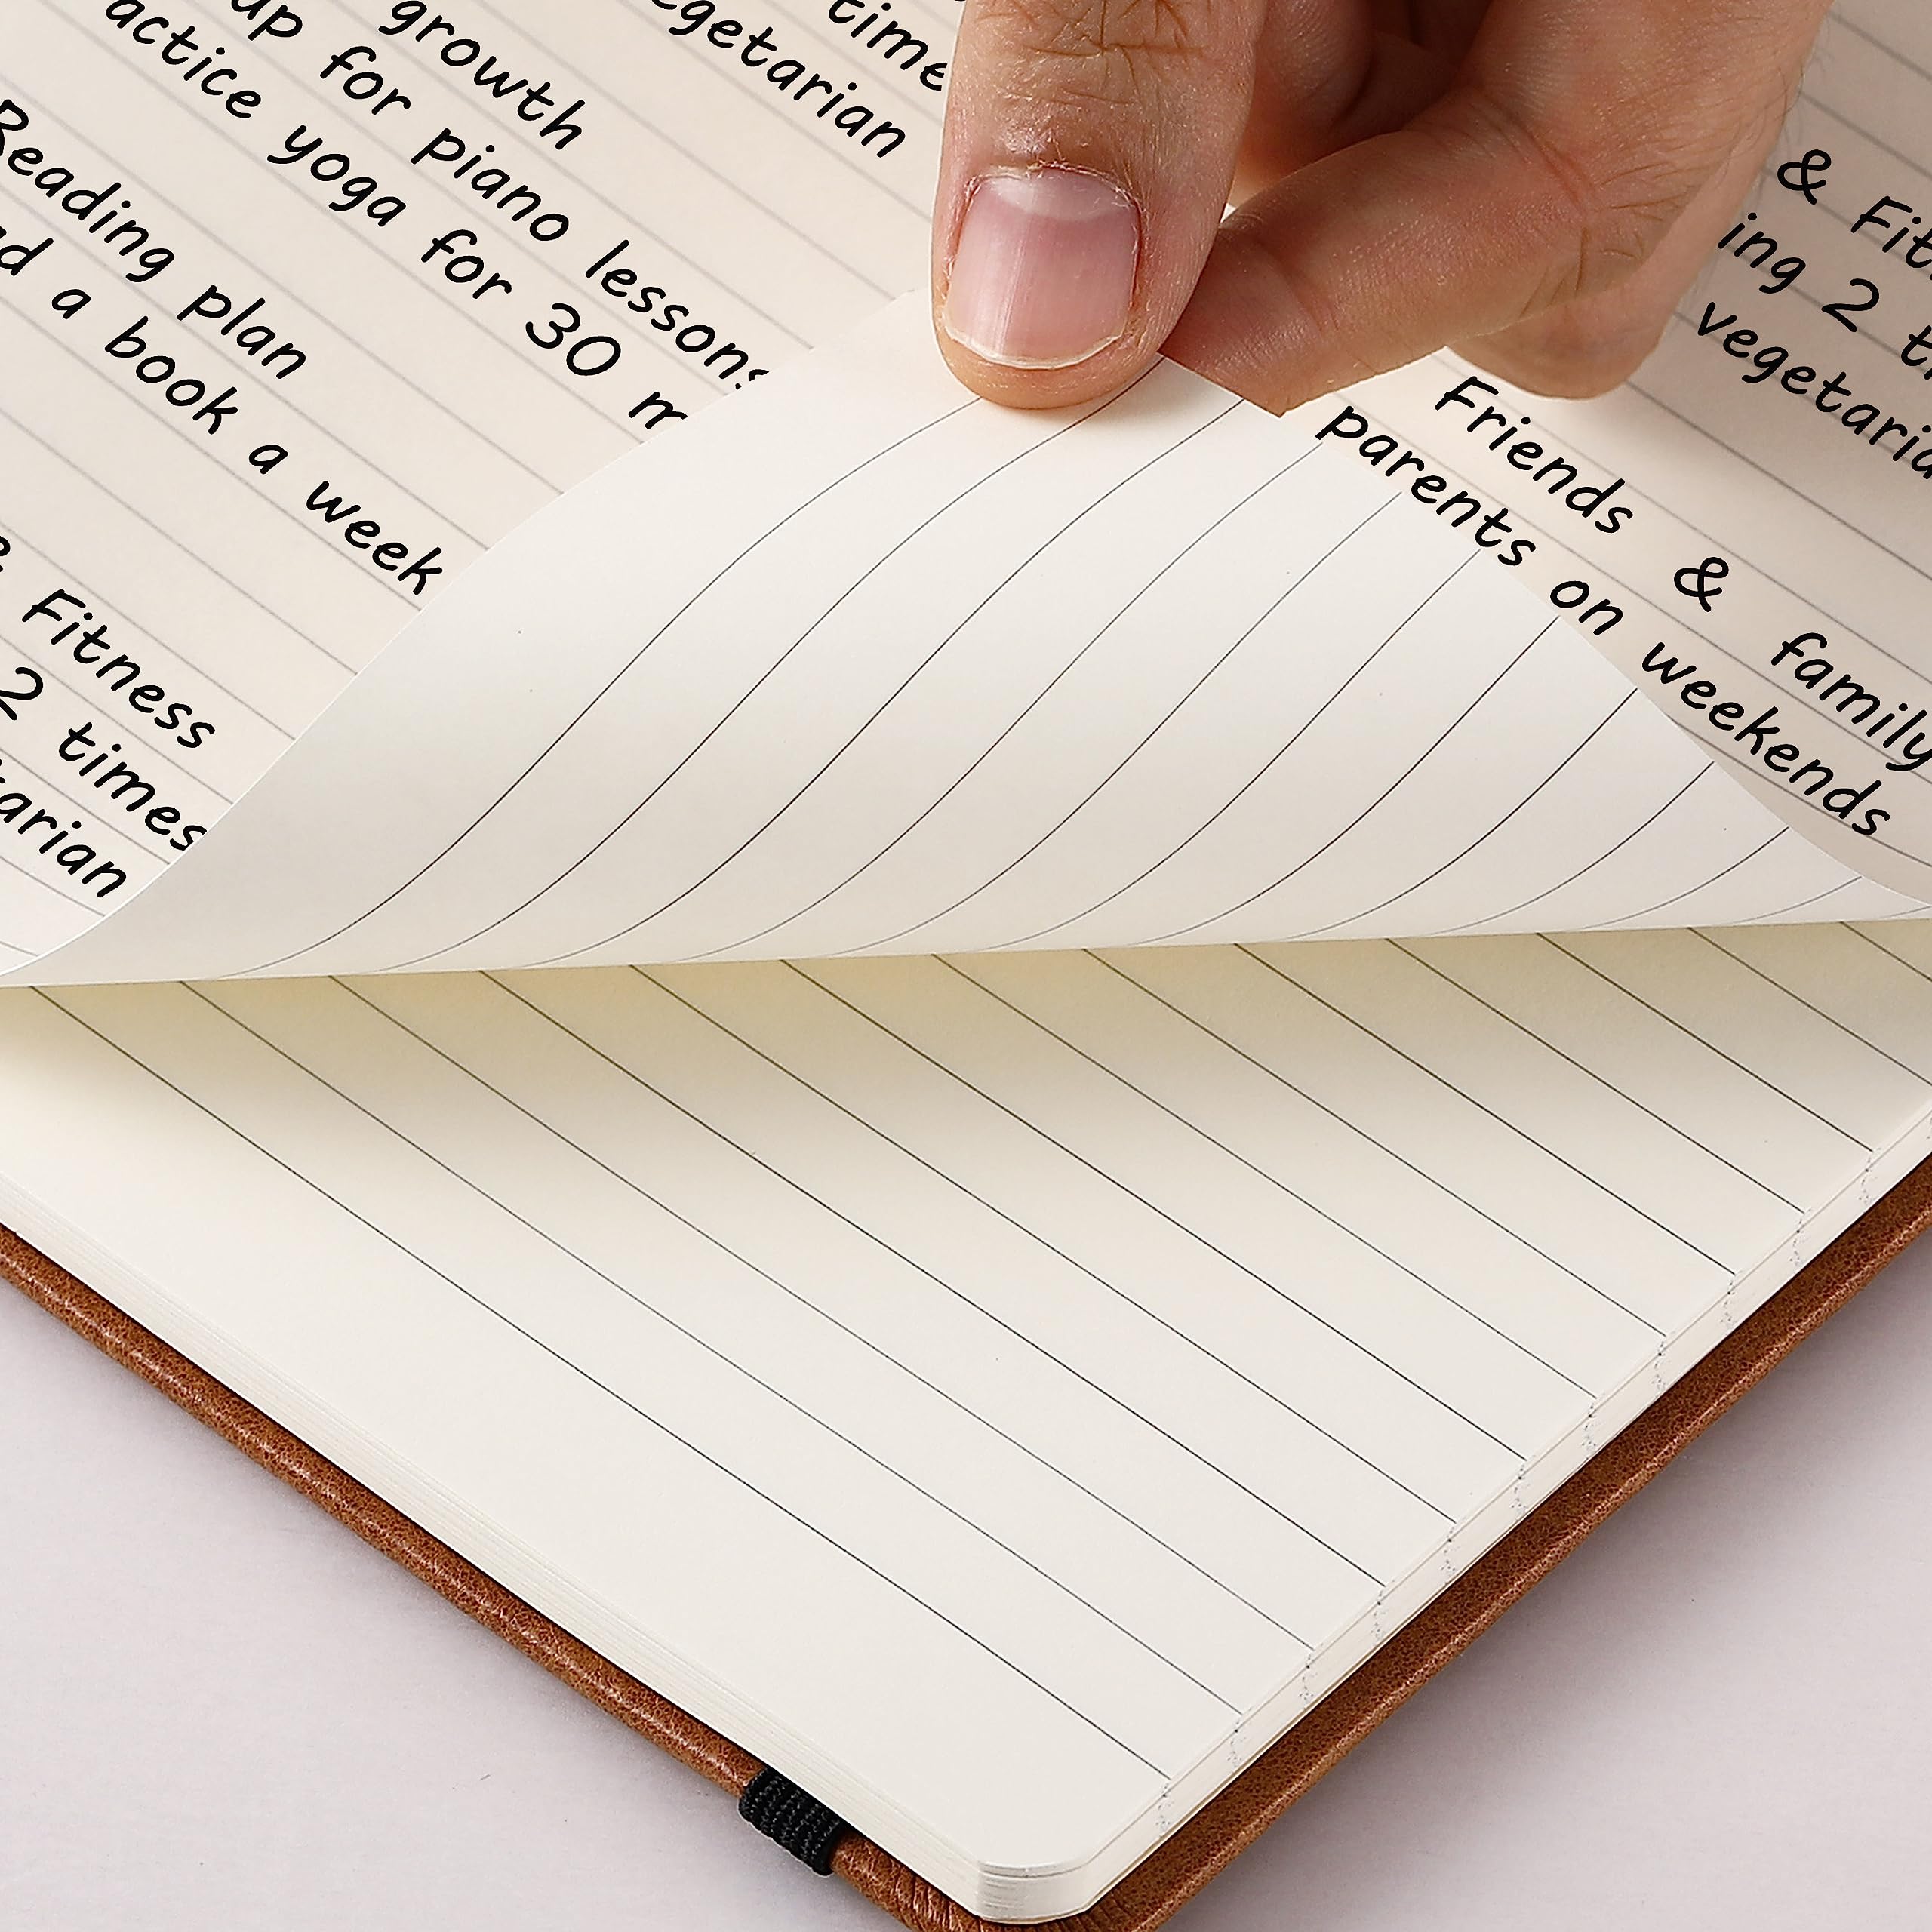 growth
up for piano lessons
actice yoga for 30 m
Reading plan
d a book a week
& Fitness
2 times
arian
time
egetarian
& Fit
ing 2 t
vegetaria
Friends & family
parents on weekends